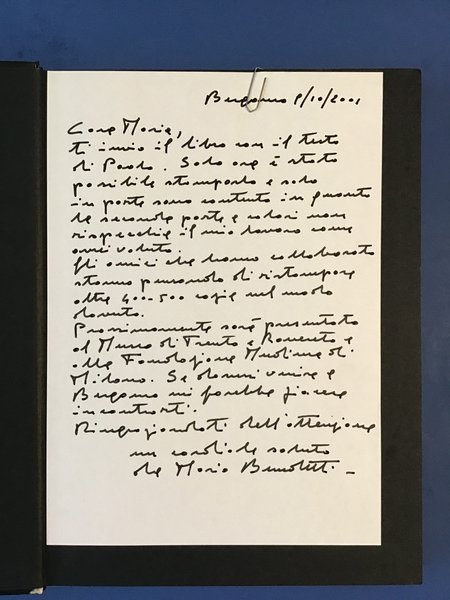 Bergamo 9/10/2001
Cara Maria,
ti invio il libro con il testo
di Paolo. Solo ora è stato
possibile stamparlo e solo
in parte sono contento in quanto
la seconda parte a colori non
rispecchia il mio lavoro come
avrei voluto.
Gli amici che hanno collaborato
stanno pensando di ristampare
oltre 400-500 copie nel modo
dovuto.
Prossimamente sarà presentato
al Museo di Trento e Rovereto e
alla Fondazione Mudima di
Milano. Se dovessi venire a
Bergamo mi farebbe piacere
incontrarti.
Ringraziandoti dell'attenzione
un cordiale saluto
da Mario Benedetti. –